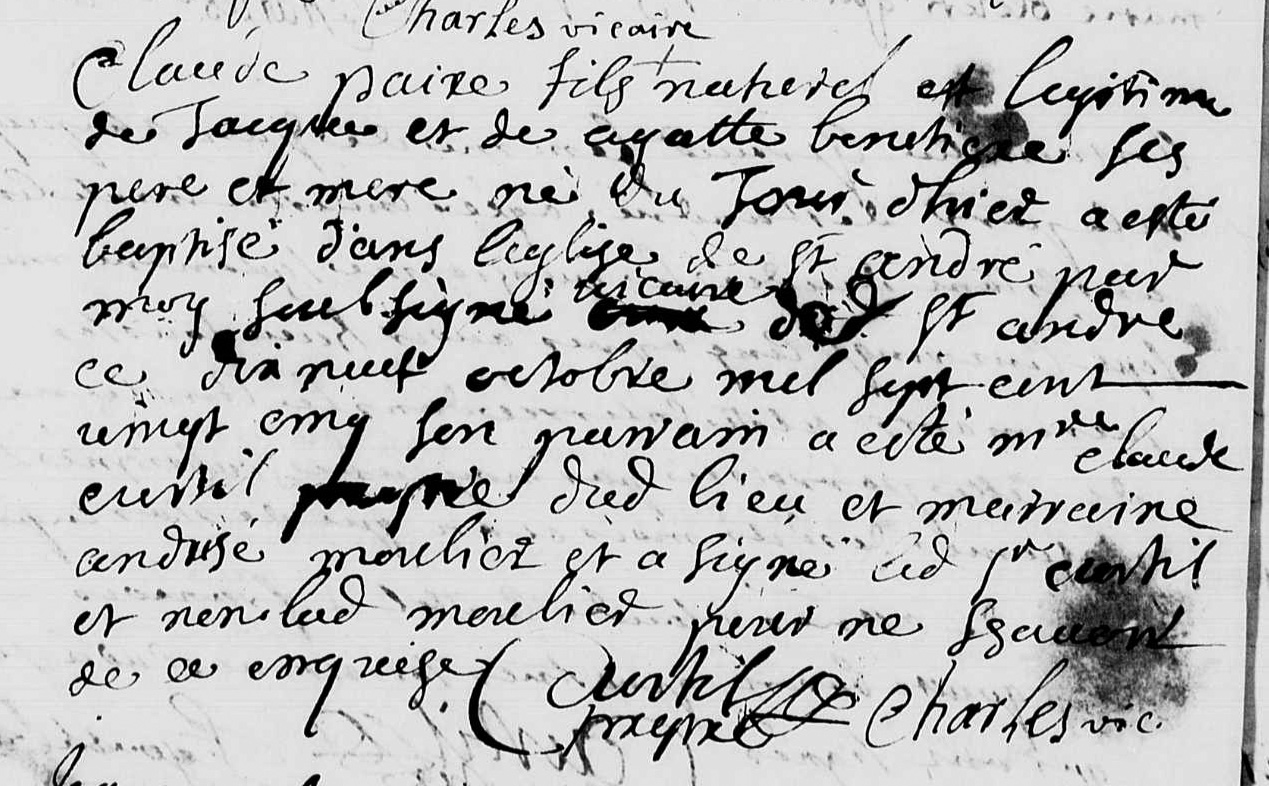 Charles vicaire
Claude paire fils naturel et legitime
de Jacque et de agatte benetiere ses
pere et mere né du Jour d'hier a esté
baptisé dans leglise de st andré par
moy soubsigné vicaire de st andre
ce dix neuf octobre mil sept cent
vingt cinq son parrain a esté mre claude
curtil prestre dud lieu et marraine
moulier et a signé led sr curtil
et non lad moulier pour ne sçavoir
de ce enquise
Curtil Charles vic.
prestre